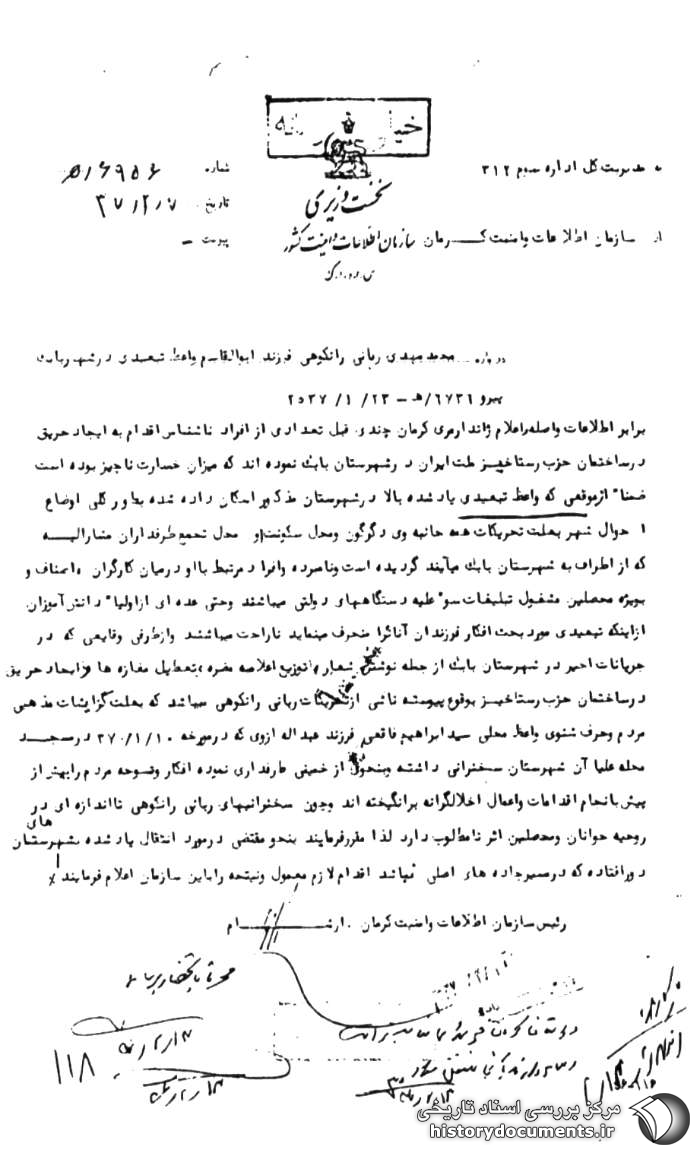 خیلی محرمانه
نخست وزیری
سازمان اطلاعات و امنیت کشور
به مدیریت کل اداره سوم ۳۱۲
شماره
تاریخ ۳۷/۲/۷
از سازمان اطلاعات و امنیت کـــرمان
پیوست –
درباره محمد مهدی ربانی رانکوهی فرزند ابوالقاسم واعظ تبعیدی در شهر بابک
پیرو ۶۷۳۶/ه‍ – ۲۳/ ۱/ ۲۵۳۷
برابر اطلاعات واصله و اعلام ژاندارمری کرمان چندی قبل تعدادی از افراد ناشناس اقدام به ایجاد حریق
در ساختمان حزب رستاخیز ملت ایران در شهرستان بابک نموده اند که میزان خسارت ناچیز بوده است
ضمنا" از موقعی که واعظ تبعیدی یاد شده بالا در شهرستان مذکور اسکان داده شده بطور کلی اوضاع
احوال شهر بعلت تحریکات همه جانبه وی دگرگون ومحل سکونت او محل تجمع طرفداران مشارالیـــه
که از اطراف به شهرستان بابک میآیند گردیده است ونامبرده وافراد مرتبط با او در میان کارگران اصناف و
بویژه محصلین مشغول تبلیغات سو" علیه دستگاههای دولتی میباشند وحتی عده ای از اولیا" دانش آموزان
از اینکه تبعیدی مورد بحث افکار فرزندان آنانرا منحرف مینماید ناراحت میباشند وازطرفی وقایعی که در
جریانات اخیر در شهرستان بابک از جمله نوشتن شعار و توزیع اعلامیه مضره ،تعطیل مغازه ها و ایجاد حریق
در ساختمان حزب رستاخیز بوقوع پیوسته ناشی از تحریکات ربانی رانکوهی میباشد که بعلت گرایشات مذهبی
مردم وحرف شنوی واعظ محلی سید ابراهیم فرزند عبداله از وی که در مورخه ۳۷۰/۱/۱۰ در مسجـــد
محله علیا آن شهرستان سخنرانی داشته وبنحوی از خمینی طرفداری نموده افکار وتوجه مردم را بیش از
پیش بانجام اقدامات واعمال اخلالگرانه برانگیخته اند وچون سخنرانیهای ربانی رانکوهی تا اندازه ای در
روحیه جوانان ومحصلین اثر نامطلوب دارد لذا مقرر فرمایند بنحو مقتضی در مورد انتقال یاد شده بشهرستان های
دور افتاده که در مسیر جاده های اصلی نباشد اقدام لازم معمول ونتیجه را باین سازمان اعلام فرمایند
رئیس سازمان اطلاعات و امنیت کرمان . آرشـــــام
۱۱۸
مرکز بررسی اسناد تاریخی
historydocuments.ir